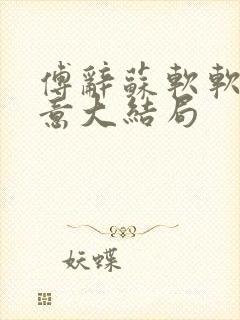 傅辭蘇軟軟
意大結局
妖蝶